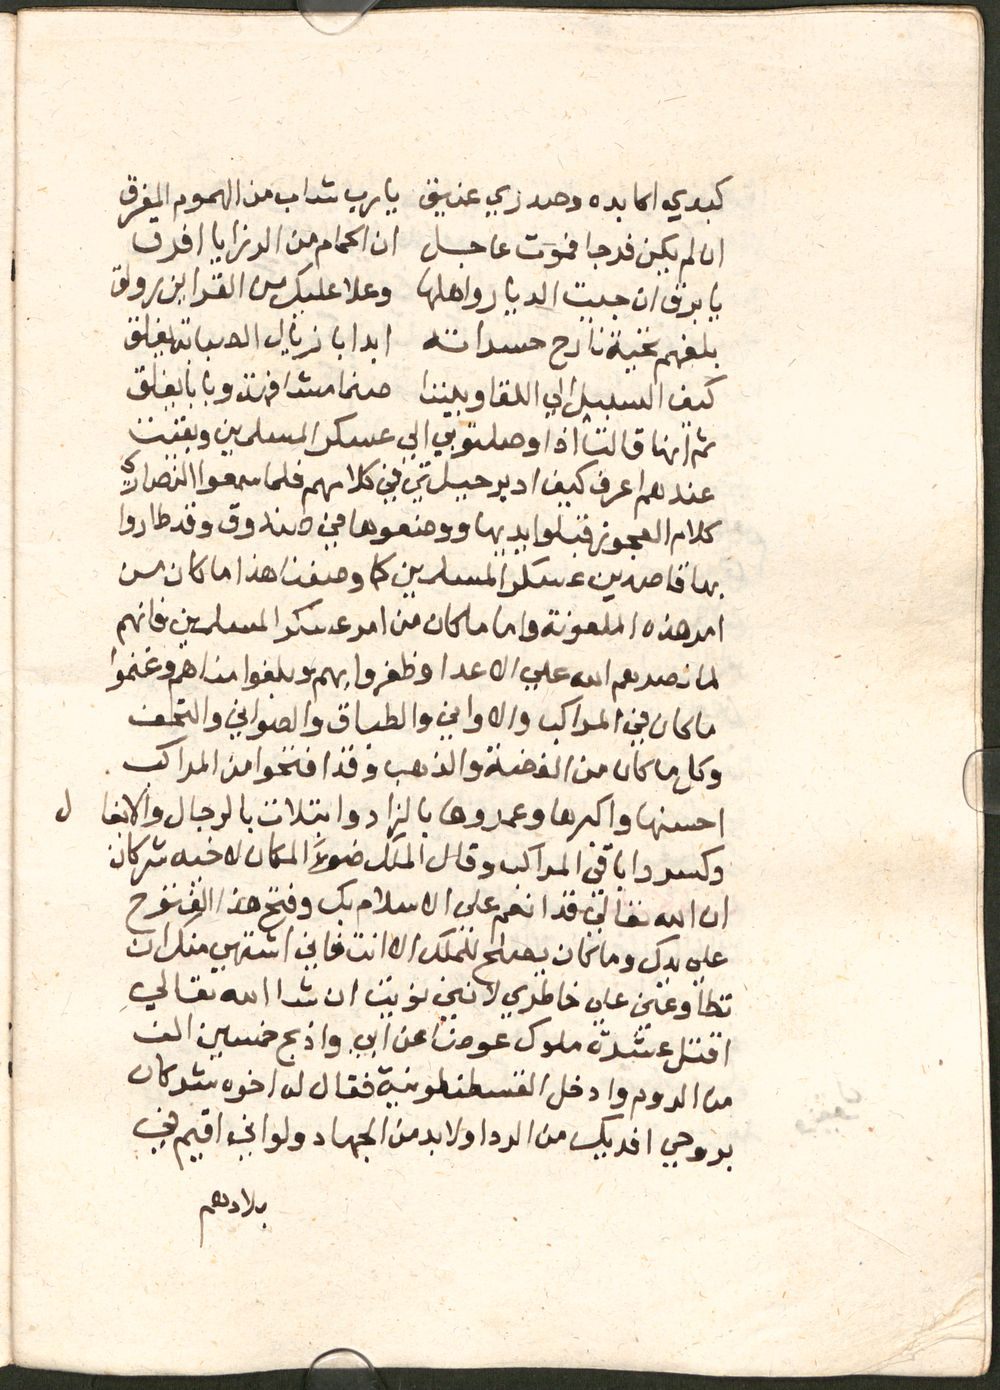 كبدي اكابده وصدري عنيق يا رب شداب من الهموم المغرق
ان لم يكن فرجا فموت عاجل ان الحمام من الرزايا افرق
يا برق ان جيت الديار واهلها وعلا عليك من القراين رولق
بلغهم تحية نازح حسراته ابدا باذيال الصبا تعلق
كيف السبيل الي اللقا وبيننا
ثم انها قالت اذا وصلتوبي الي عسكر المسلمين وبقيت
عندهم اعرف كيف ادبر حيلتي في كلامهم فلما سمعوا النصاري
كلام العجوز قبلوا يديها ووضعوها في صندوق وقد طاروا
بها قاصدين عسكر المسلمين كما وصفنا هذا ما كان من
امر هذه الملعونة واما ما كان من امر عسكر المسلمين فانهم
لما نصرهم الله علي الاعدا وظفروا بهم وبلغوا مناهم وغنموا
ما كان في المراكب والاواني والطباق والصواني والتحف
وكل ما كان من الفضة والذهب وقد افتخوا من المراكب
احسنها واكبرها وعمروها بالزاد وامتلات بالرجال والانفا ل
وكسروا باقي المراكب وقال الملك ضوء المكان لاخيه شركان
ان الله تعالي قد انعم علي الاسلام بك وفتح هذا الفتوح
علي يدك وما كان يصلح للملك الا انت فاني اشتهي منك ان
تطاوعني علي خاطري لانني نويت ان شا الله تعالي
اقتل عشرة ملوك عوضا عن ابي واذبح خمسين الف
من الروم وادخل القسطنطونية فقال له اخوه شركان
بروحي افديك من الردا ولا بد من الجهاد ولو اني اقيم في
بلادهم